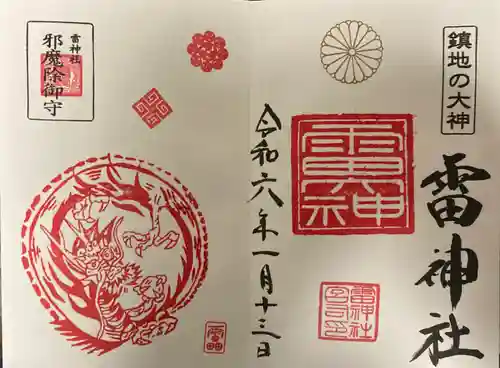 鎮地の大神
雷神社
令和六年一月十三日
雷神社
雷神社
邪魔除御守